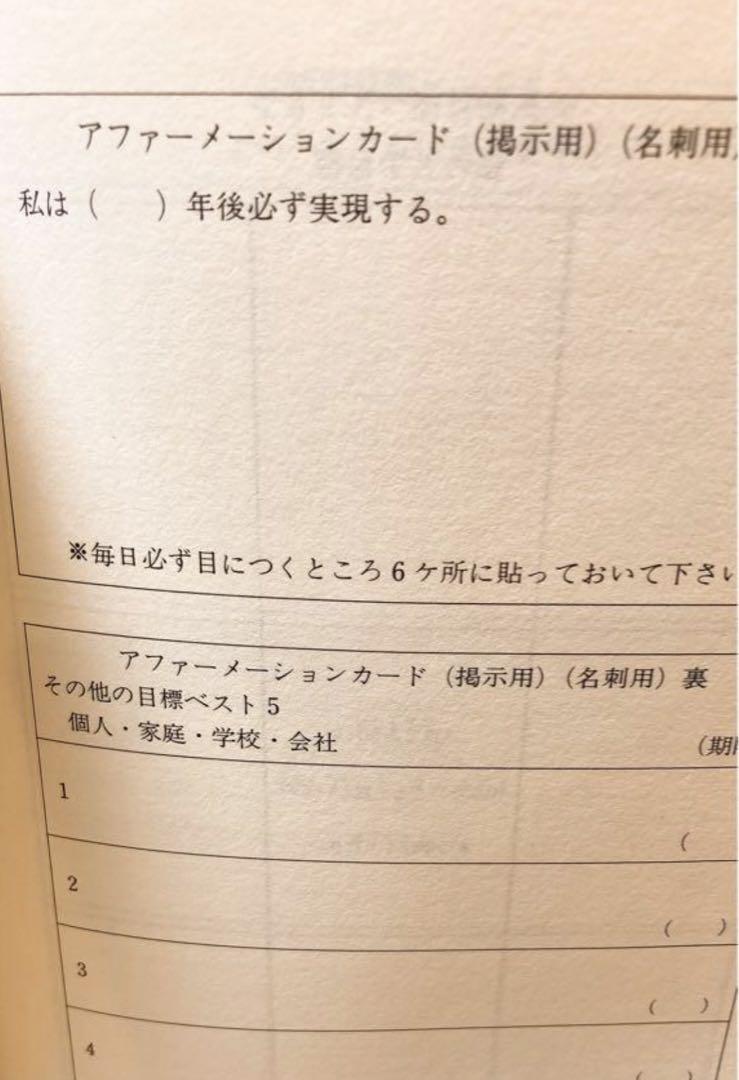 アファーメーションカード（掲示用）（名刺用
私は（　　）年後必ず実現する。
※毎日必ず目につくところ6ケ所に貼っておいて下さい
アファーメーションカード（掲示用）（名刺用）裏
その他の目標ベスト5
個人・家庭・学校・会社　（期
1　（
2　（　）
3　（　）
4　（　）